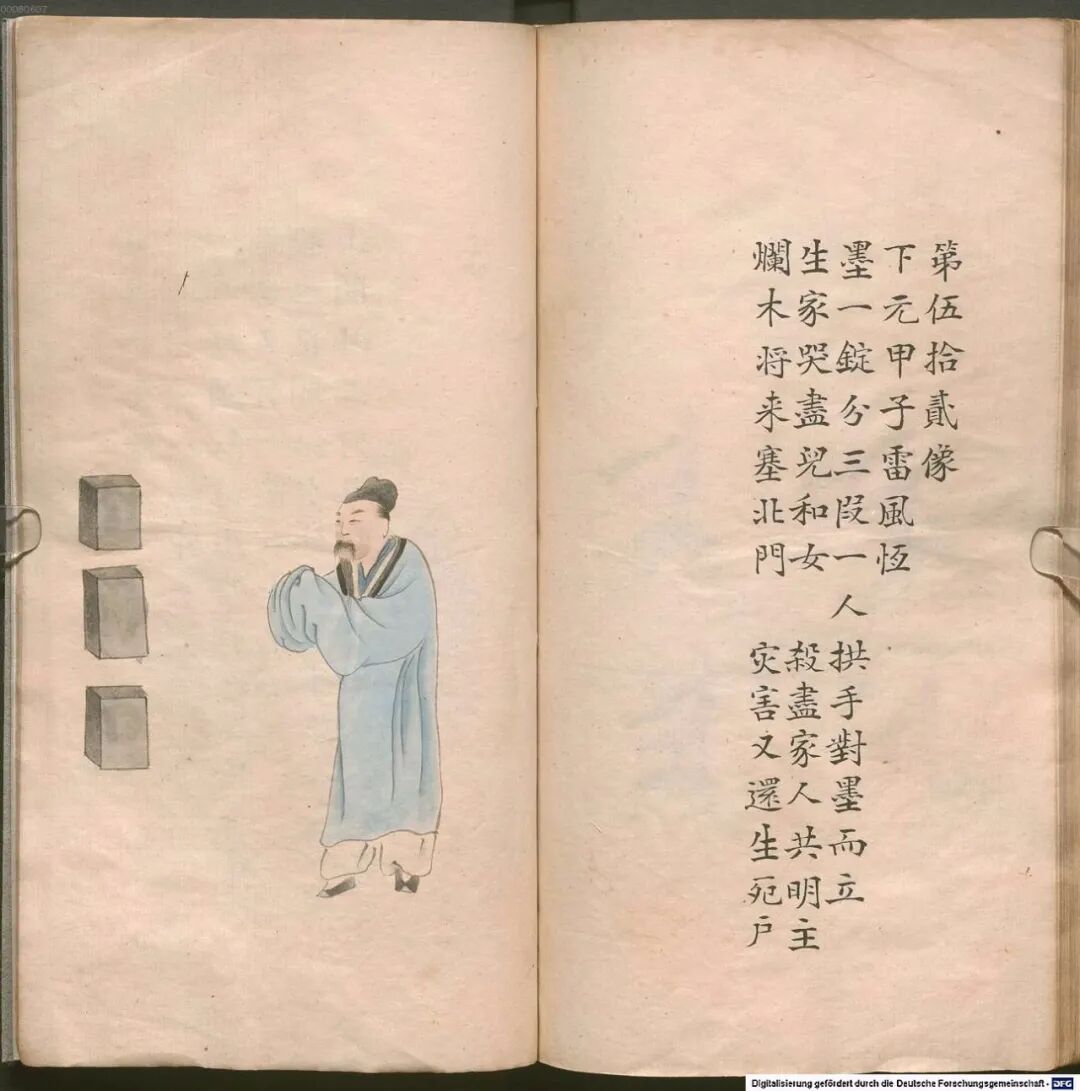 第伍拾貳像
下元甲子雷風恆
墨一錠分三段一人拱手對墨而立
生家哭盡兒和女 殺盡家人共明主
爛木将来塞北門 灾害又還生死户
00080607
Digitalisierung gefördert durch die Deutsche Forschungsgemeinschaft - DFG